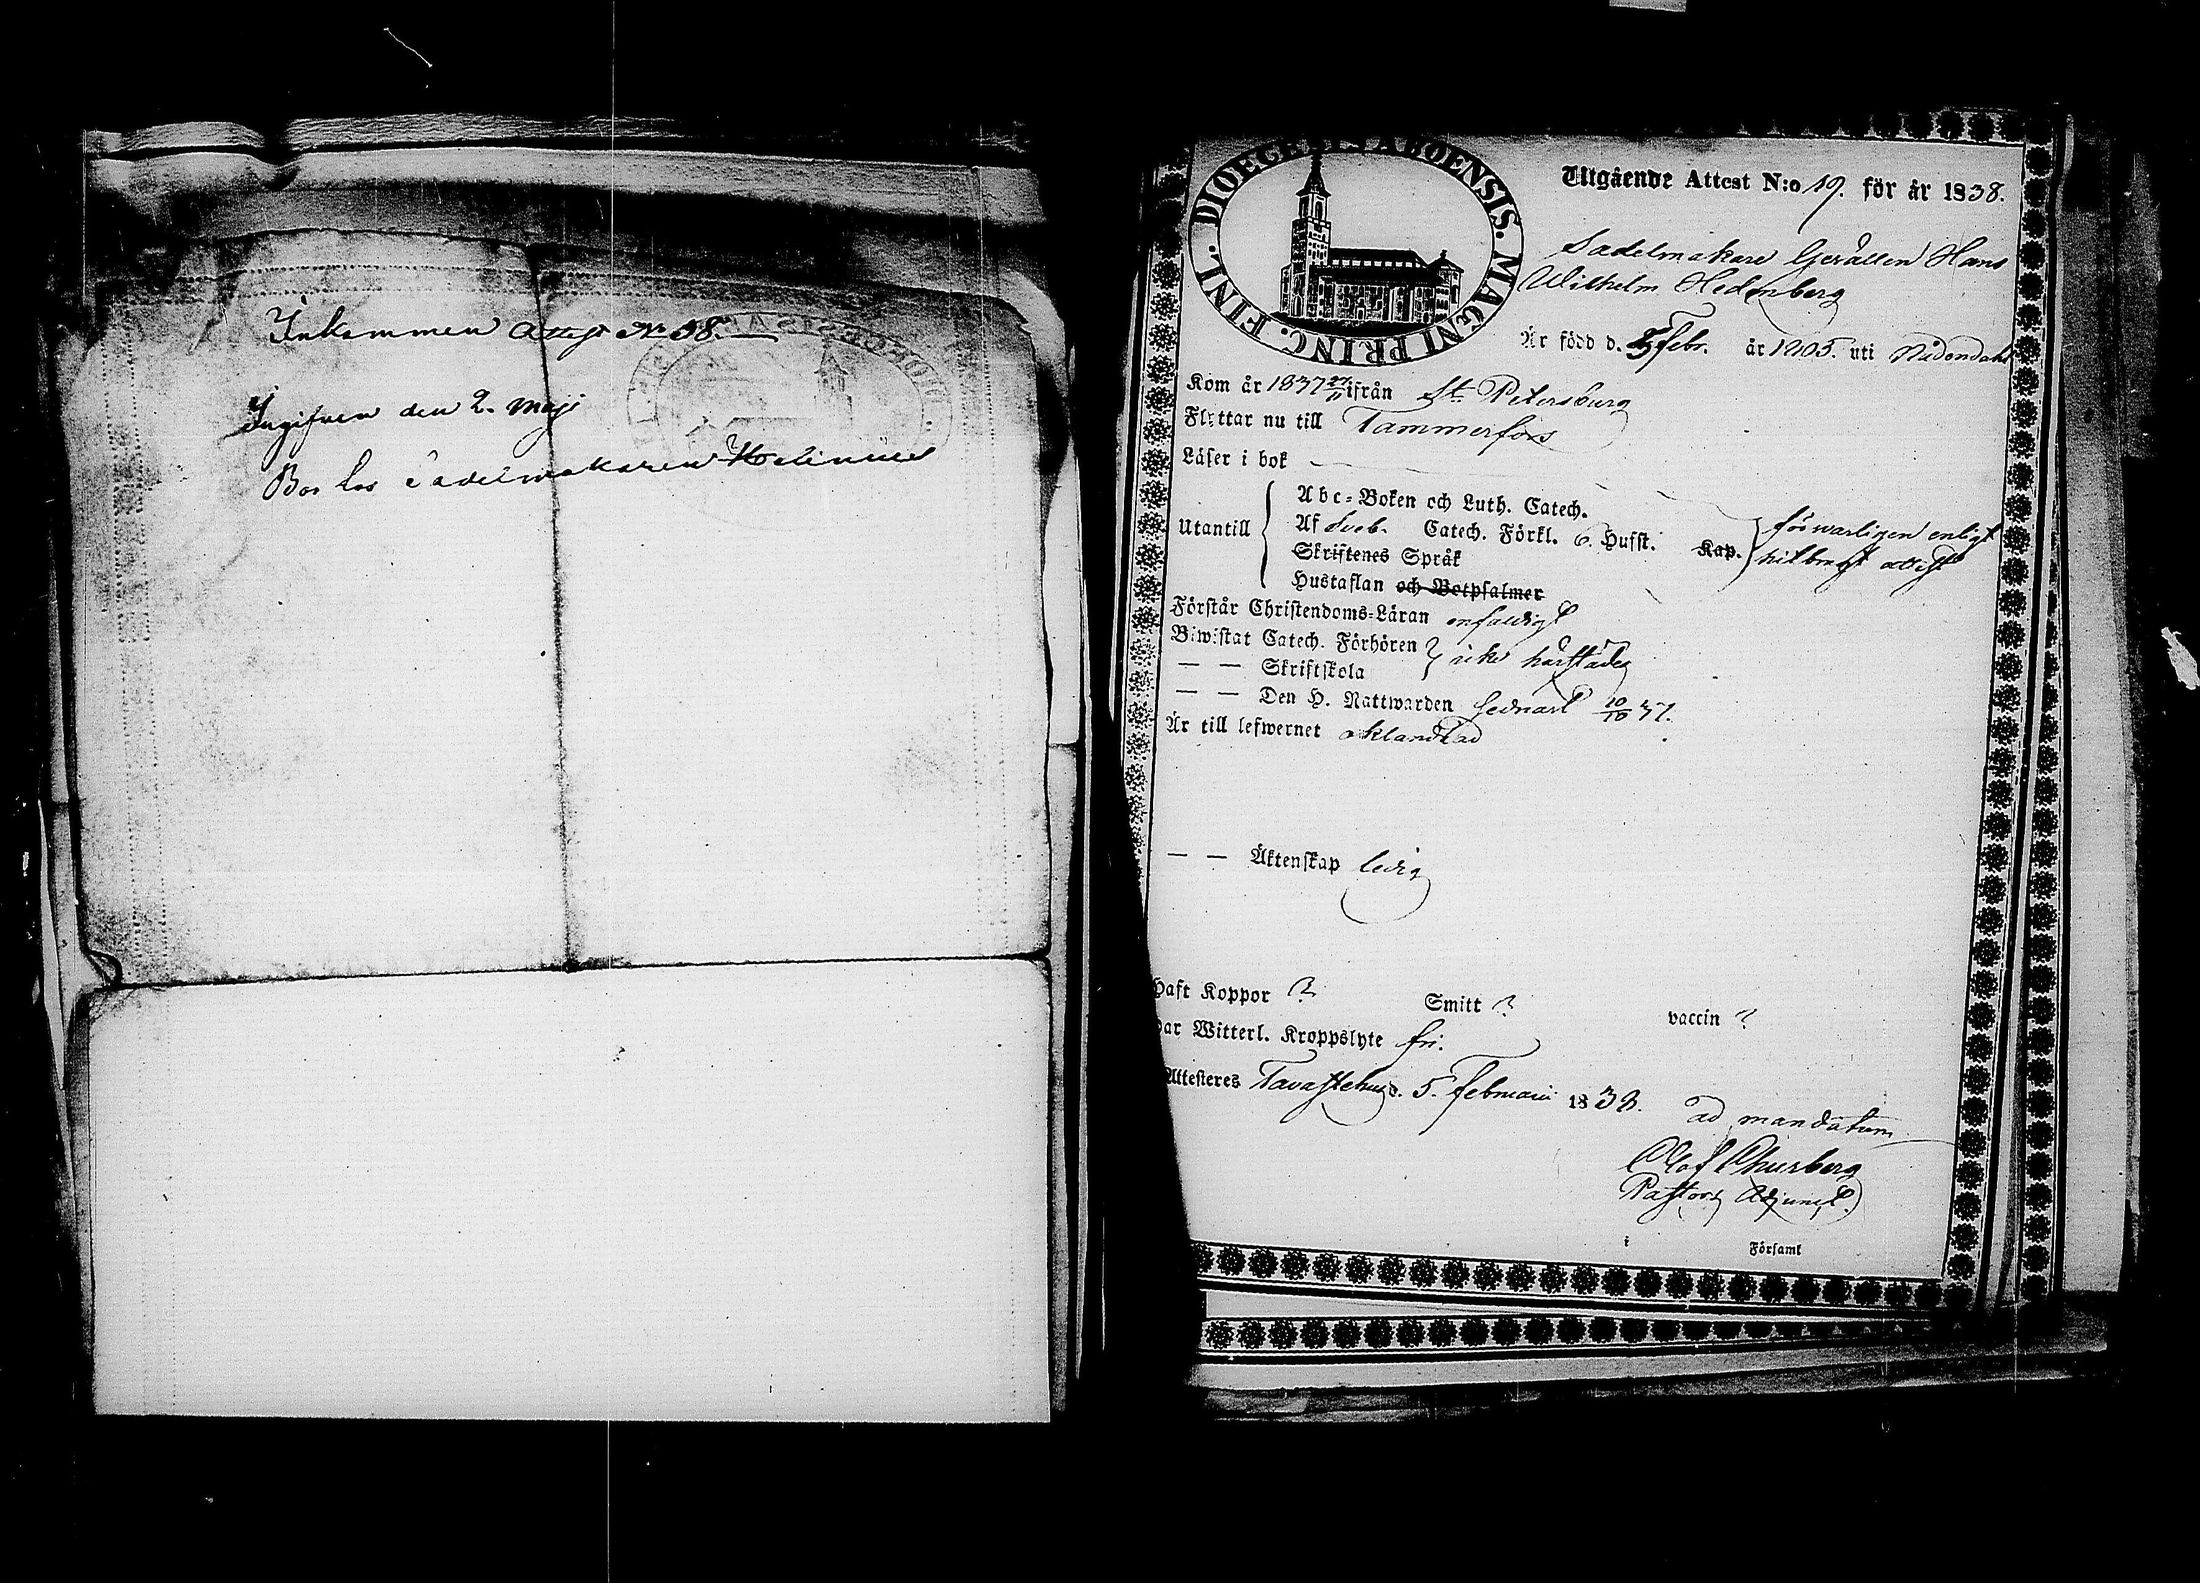 Inkommen Attest No 58.
Ingifven den 2. Maji
Bor hos Sadelmakaren
DIOECESIS ABOENSIS. MAGNI PRINC. FINL.
Utgående Attest N:o 19. för år 1838.
Sadelmakare Gesällen Hans
Wilhelm Hedenberg
Är född d. Febr. år 1805. uti Nådendal
Kom år 1837 27/11 ifrån St. Petersburg
Flyttar nu till Tammerfors
Läser i bok
Abc-Boken och Luth. Catech.
Utantill Af Sveb. Catech. Förkl. 6. Hufst. Kap. försvarligen enligt
Skriftenes Språk hitbragt attest
Hustaflan och Botpsalmer
Förstår Christendoms-Läran enfaldigt
Biwistat Catech. Förhören
— — Skriftskola icke härstädes
— — Den H. Nattwarden sednast 10/10 37.
Är till lefwernet oklandrad
— — Äktenskap ledig
Haft Koppor ? Smitt ? vaccin ?
Har Witterl. Kroppslyte fri.
Attesteres Tavastehus d. 5. Februarii 1838.
ad mandatum
Olof Churberg
Pastors Adjunct.
i Församl